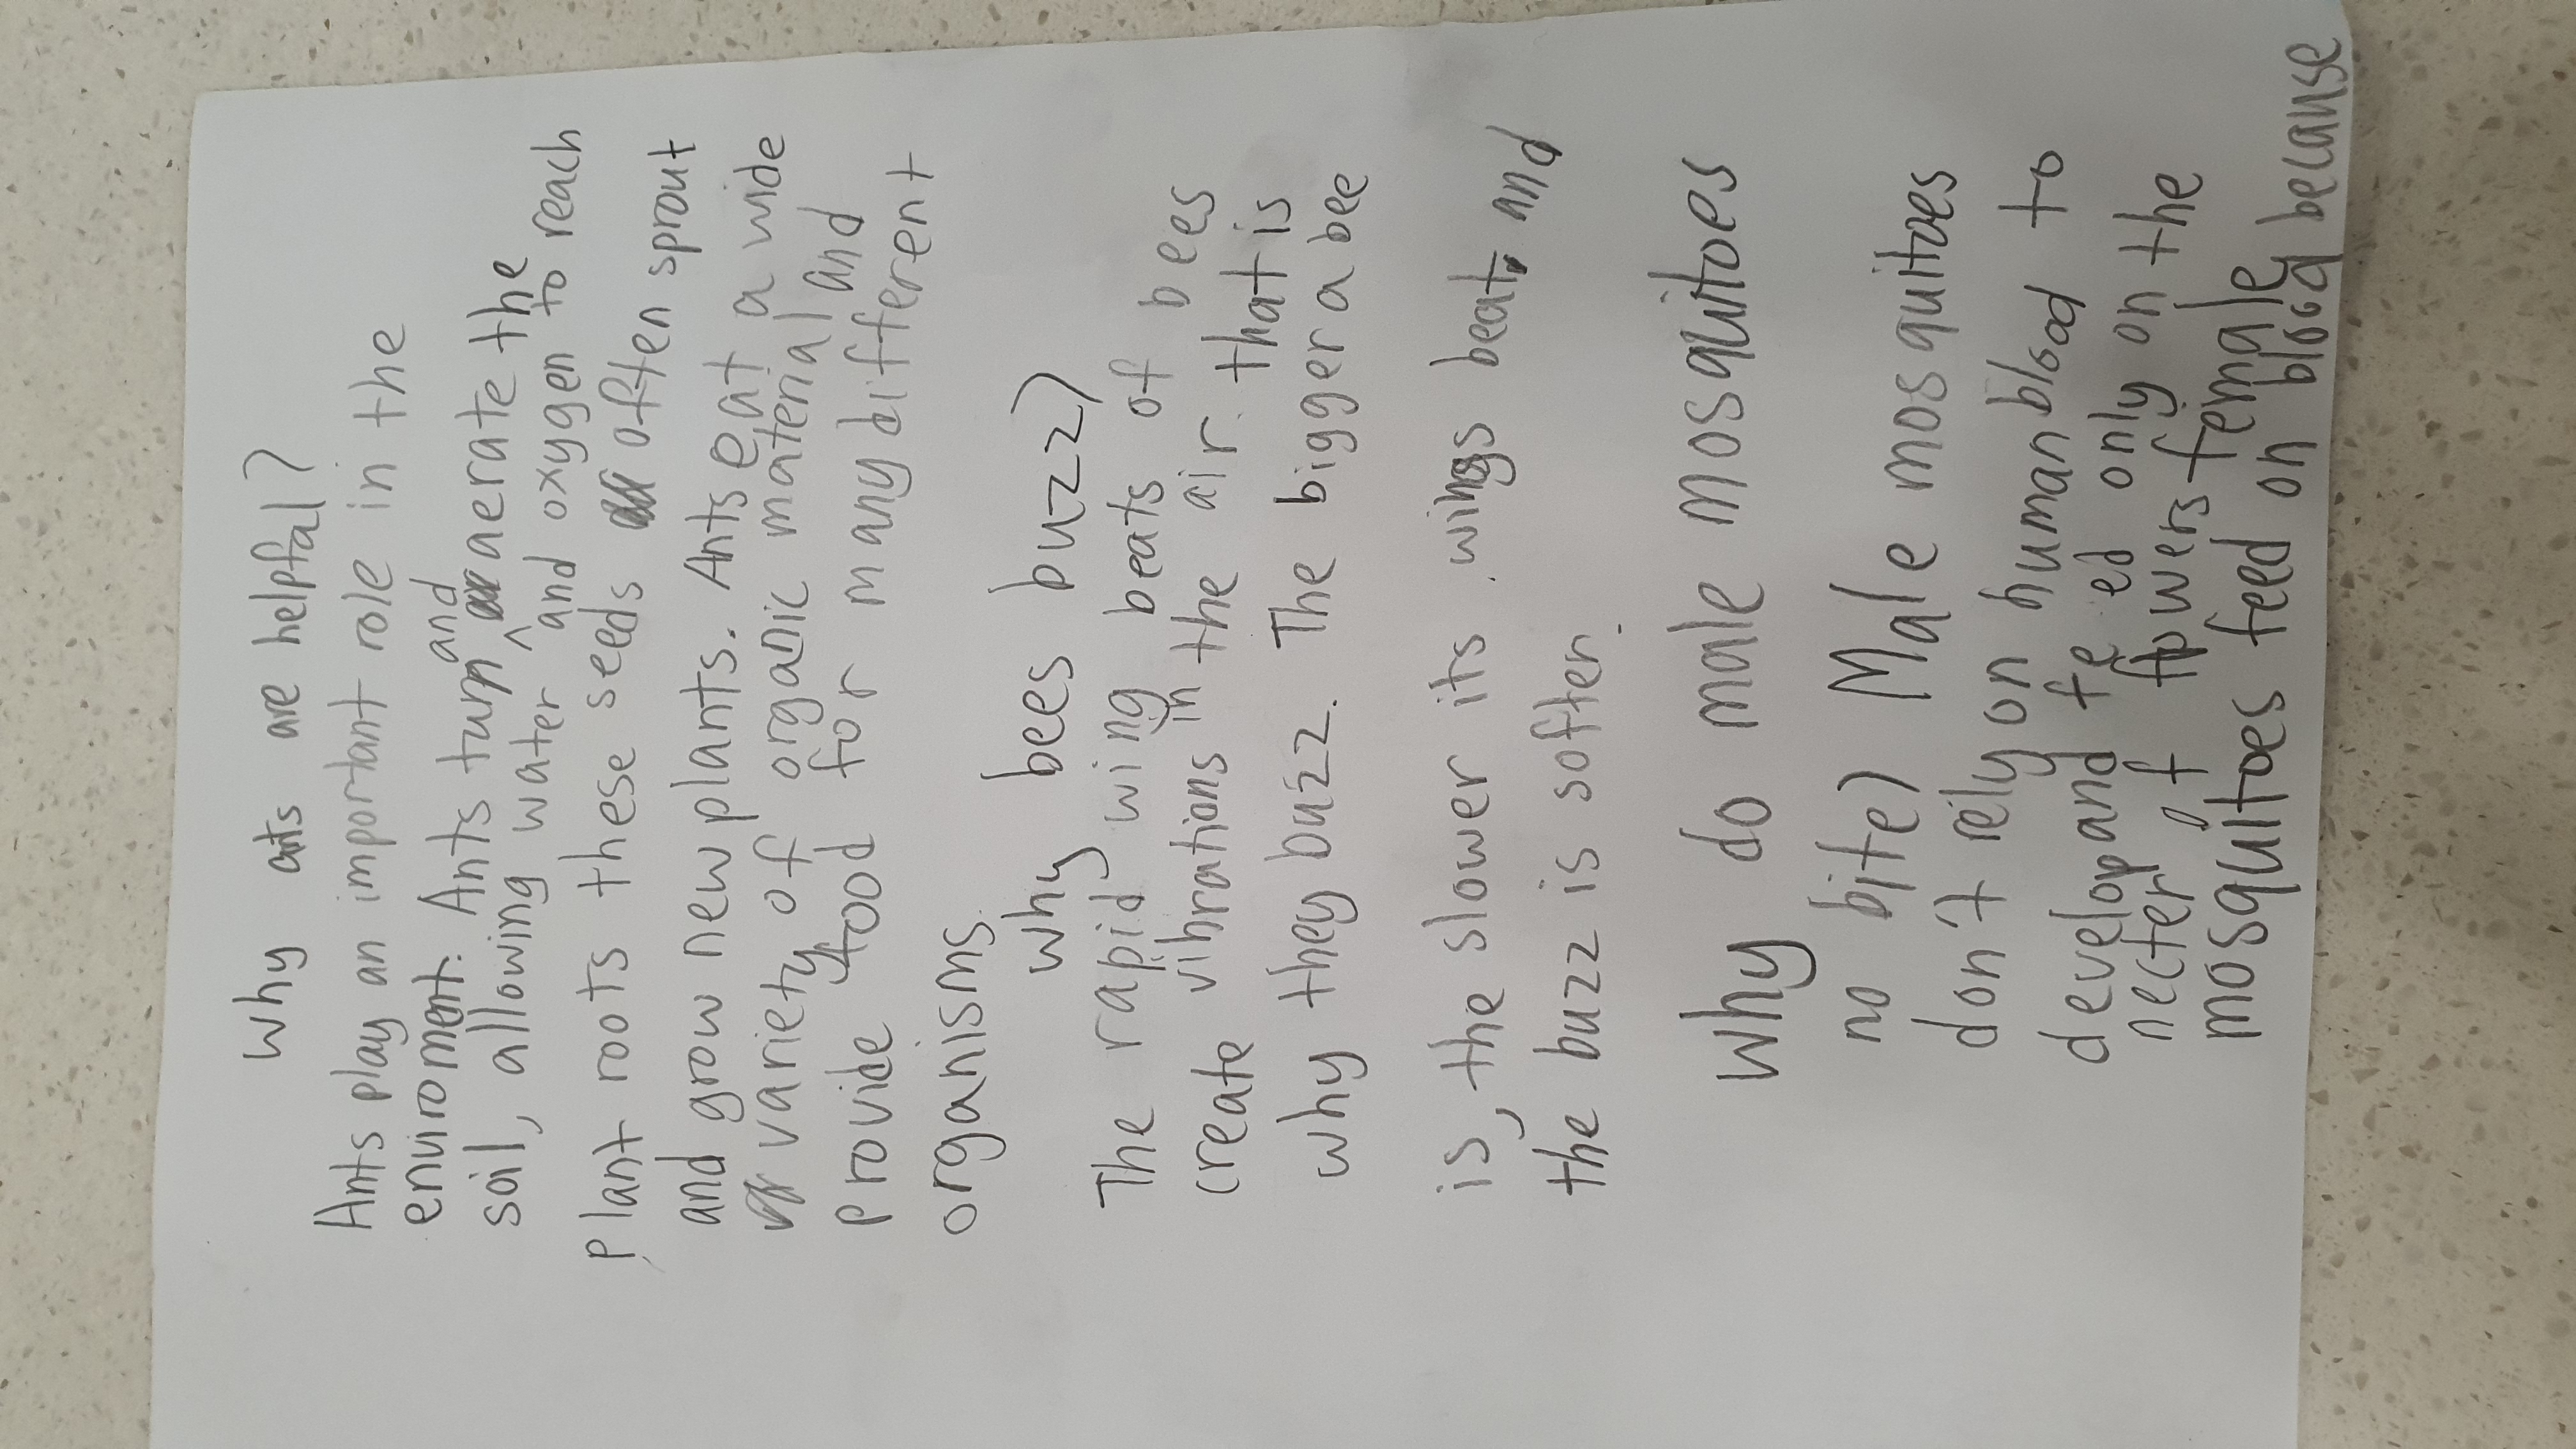 Why ants are helpful?
Ants play an important role in the
enviroment. Ants turn and aerate the
soil, allowing water and oxygen to reach
plant roots these seeds often sprout
and grow new plants. Ants eat a wide
variety of organic material and
provide food for many different
organisms.
why bees buzz?
The rapid wing beats of bees
create vibrations in the air that is
why they buzz. The bigger a bee
is, the slower its wings beat and
the buzz is softer.
Why do male mosquitoes
no bite? Male mosquitoes
don't rely on human blood to
develop and feed only on the
necter of flowers female
mosquitoes feed on blood because